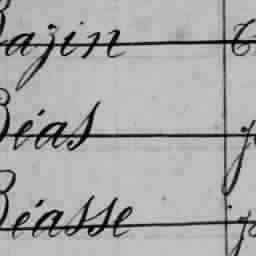 Bazin
Béas
Béasse